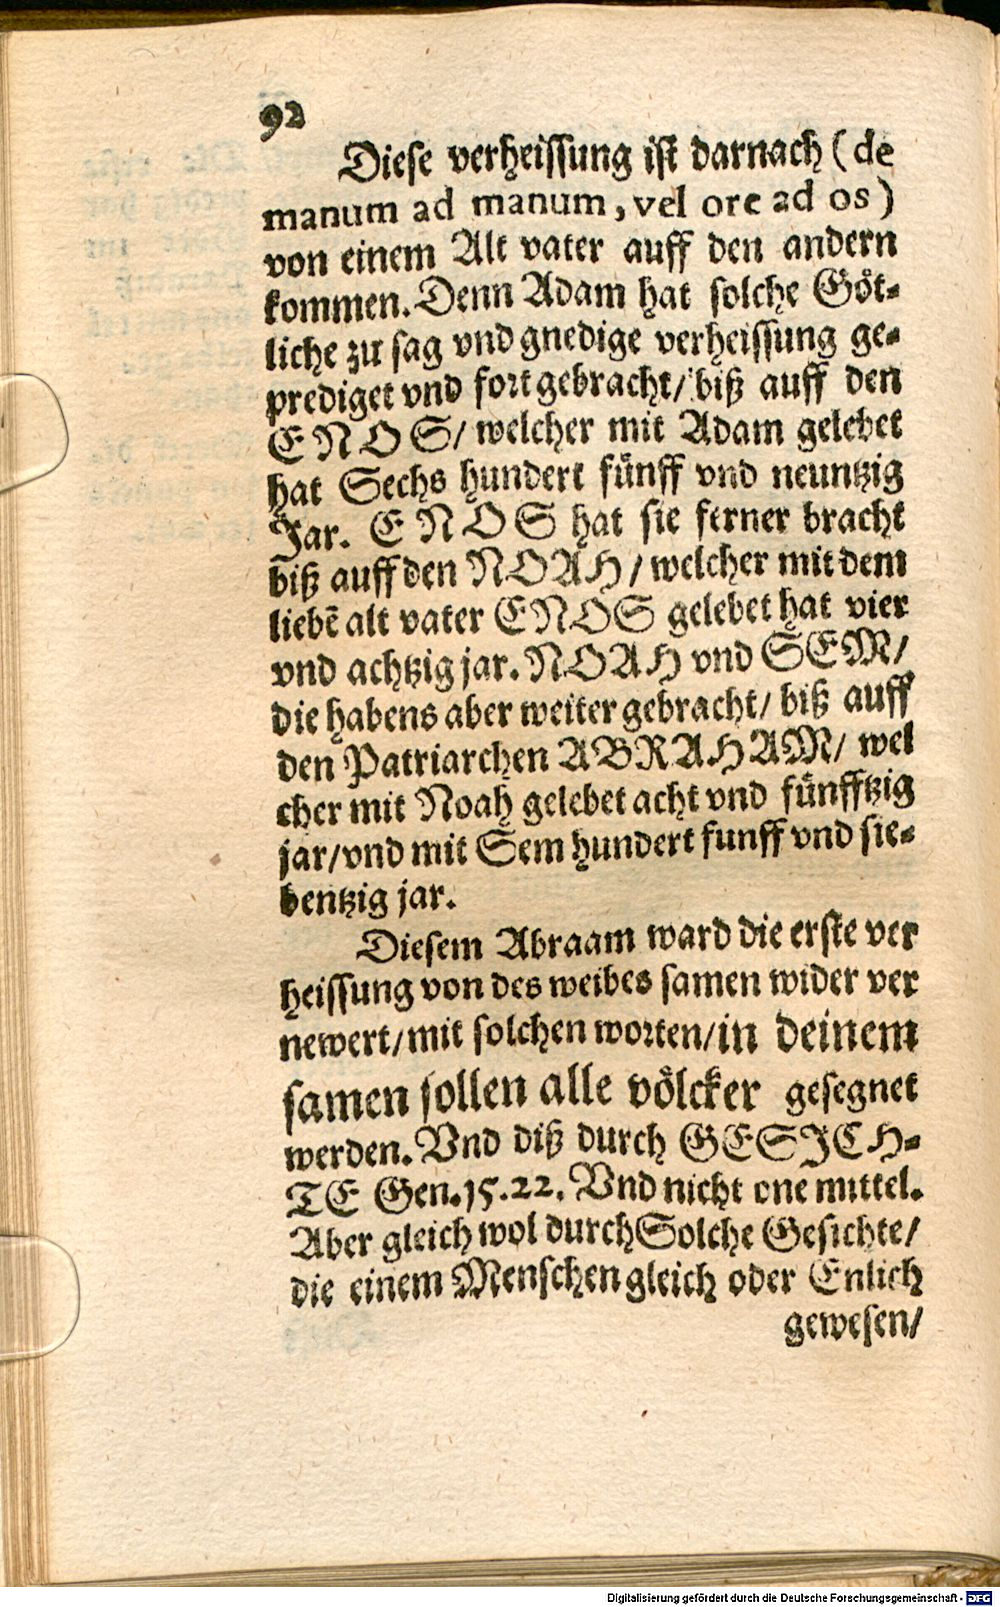 92
Diese verheissung ist darnach (de
manum ad manum, vel ore ad os)
von einem Alt vater auff den andern
kommen. Denn Adam hat solche Göt-
liche zu sag vnd gnedige verheissung ge-
prediget vnd fort gebracht/ biß auff den
ENOS/ welcher mit Adam gelebet
hat Sechs hundert fünff vnd neuntzig
Jar. ENOS hat sie ferner bracht
biß auff den NOAH/ welcher mit dem
liebē alt vater ENOS gelebet hat vier
vnd achtzig jar. NOAH vnd SEM/
die habens aber weiter gebracht/ biß auff
den Patriarchen ABRAHAM/ wel
cher mit Noah gelebet acht vnd fünfftzig
jar/ vnd mit Sem hundert funff vnd sie-
bentzig jar.
Diesem Abraam ward die erste ver
heissung von des weibes samen wider ver
newert/ mit solchen worten/ in deinem
samen sollen alle völcker gesegnet
werden. Vnd diß durch GESICH-
TE Gen. 15. 22. Vnd nicht one mittel.
Aber gleich wol durch Solche Gesichte/
die einem Menschen gleich oder Enlich
gewesen/
Digitalisierung gefördert durch die Deutsche Forschungsgemeinschaft - DFG